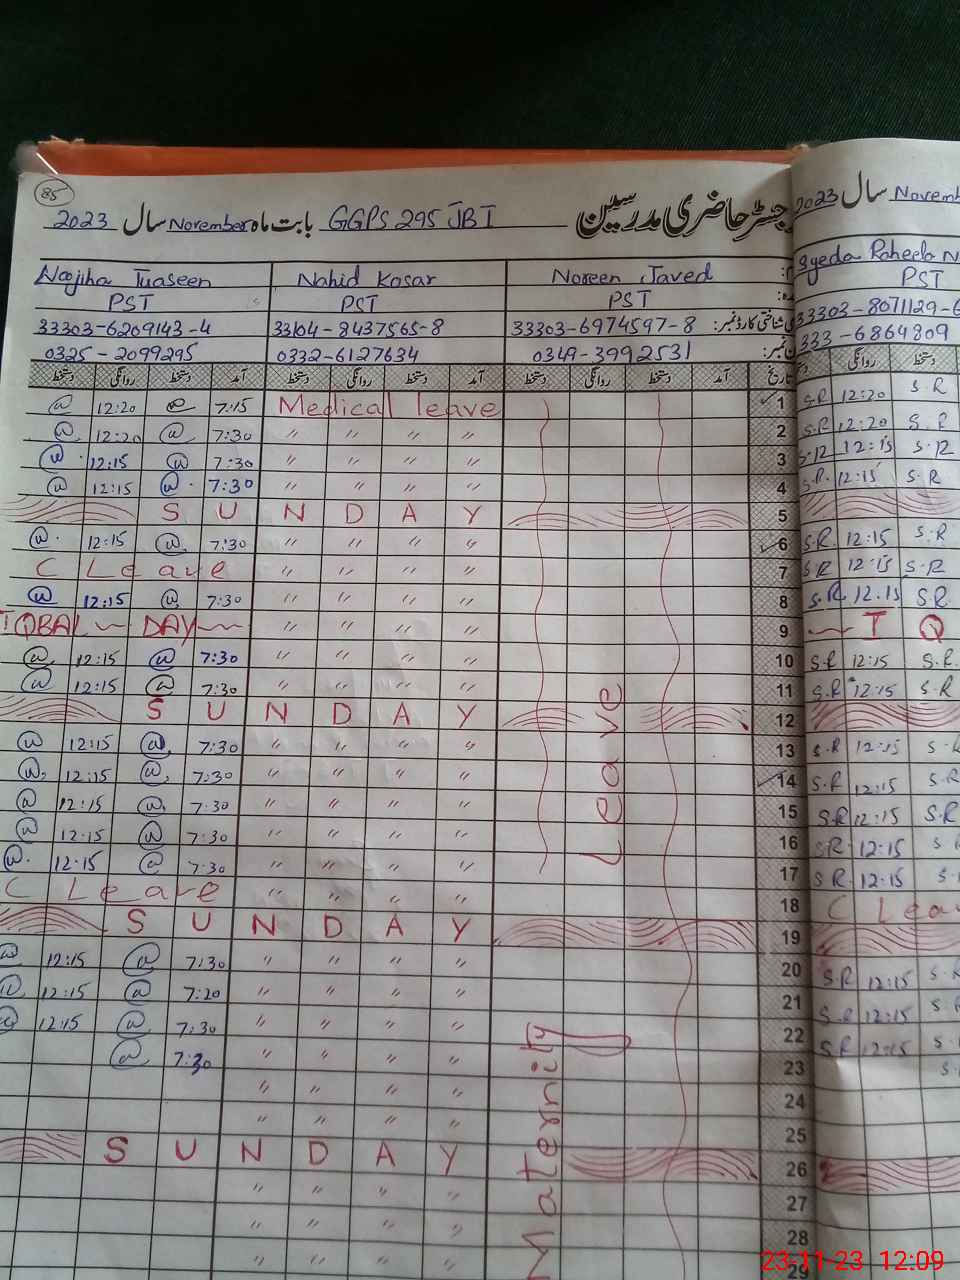 85
رجسٹر حاضری مدرسین GGPS 295 JBI بابت ماہ November سال 2023
2023 سال
Noreen Javed Nahid Kosar
PST PST PST PST
33303-6209143-4 33104-8437565-8 33303-6974597-8 33303-8071129-6
0325-2099295 0332-6127634 0349-3992531 333-6864809
دستخط روانگی دستخط آمد دستخط روانگی دستخط آمد دستخط روانگی دستخط آمد تاریخ روانگی دستخط
@ 12:20 @ 7:15 Medical leave 1 S.R 12:20 S.R
@ 12:20 @ 7:30 〃 〃 〃 〃 2 S.R 12:20 S.R
@ 12:15 @ 7:30 〃 〃 〃 〃 3 S.R 12:15 S.R
@ 12:15 @ 7:30 〃 〃 〃 〃 4 S.R. 12:15 S.R
S U N D A Y 5
@ 12:15 @ 7:30 〃 〃 〃 〃 6 S.R 12:15 S.R
C Leave 〃 〃 〃 〃 7 S.R 12:15 S.R
@ 12:15 @ 7:30 〃 〃 〃 〃 8 S.R 12.15 S.R
IQBAL DAY 〃 〃 〃 〃 9 I Q
@ 12:15 @ 7:30 〃 〃 〃 〃 10 S.R 12:15 S.R.
@ 12:15 @ 7:30 〃 〃 〃 〃 11 S.R 12:15 S.R
S U N D A Y 12
@ 12:15 @ 7:30 〃 〃 〃 〃 13 S.R 12:15
@ 12:15 @ 7:30 〃 〃 〃 〃 14 S.R 12:15 S.R
@ 12:15 @ 7:30 〃 〃 〃 〃 15 S.R 12:15 S.R
@ 12:15 @ 7:30 〃 〃 〃 〃 16 S.R 12:15
@ 12:15 @ 7:30 〃 〃 〃 〃 17 S.R 12:15
C Leave 〃 〃 〃 〃 18 C Lea
S U N D A Y 19
@ 12:15 @ 7:30 〃 〃 〃 〃 20 S.R 12:15
@ 12:15 @ 7:20 〃 〃 〃 〃 21 S.R 12:15
@ 12:15 @ 7:30 〃 〃 〃 〃 22 S.R 12:15
@ 7:30 〃 〃 〃 〃 23
〃 〃 〃 〃 24
〃 〃 〃 〃 25
S U N D A Y 26
〃 〃 〃 〃 27
〃 〃 〃 〃 28
〃 〃 〃 〃 29
Maternity Leave
23-11-23 12:09